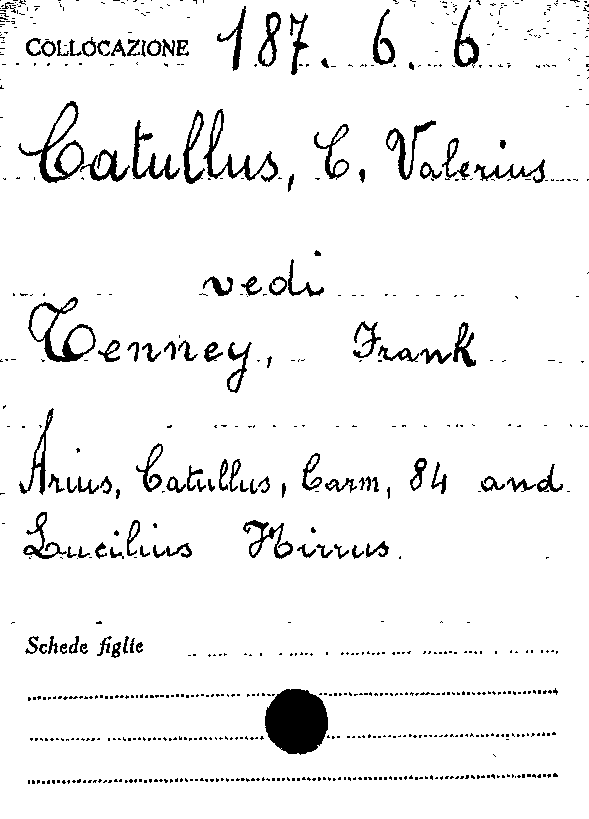 COLLOCAZIONE 187. 6. 6
Catullus, C. Valerius
vedi
Tenney, Frank
Arius, Catullus, Carm, 84 and
Lucilius Hirrus.
Schede figlie